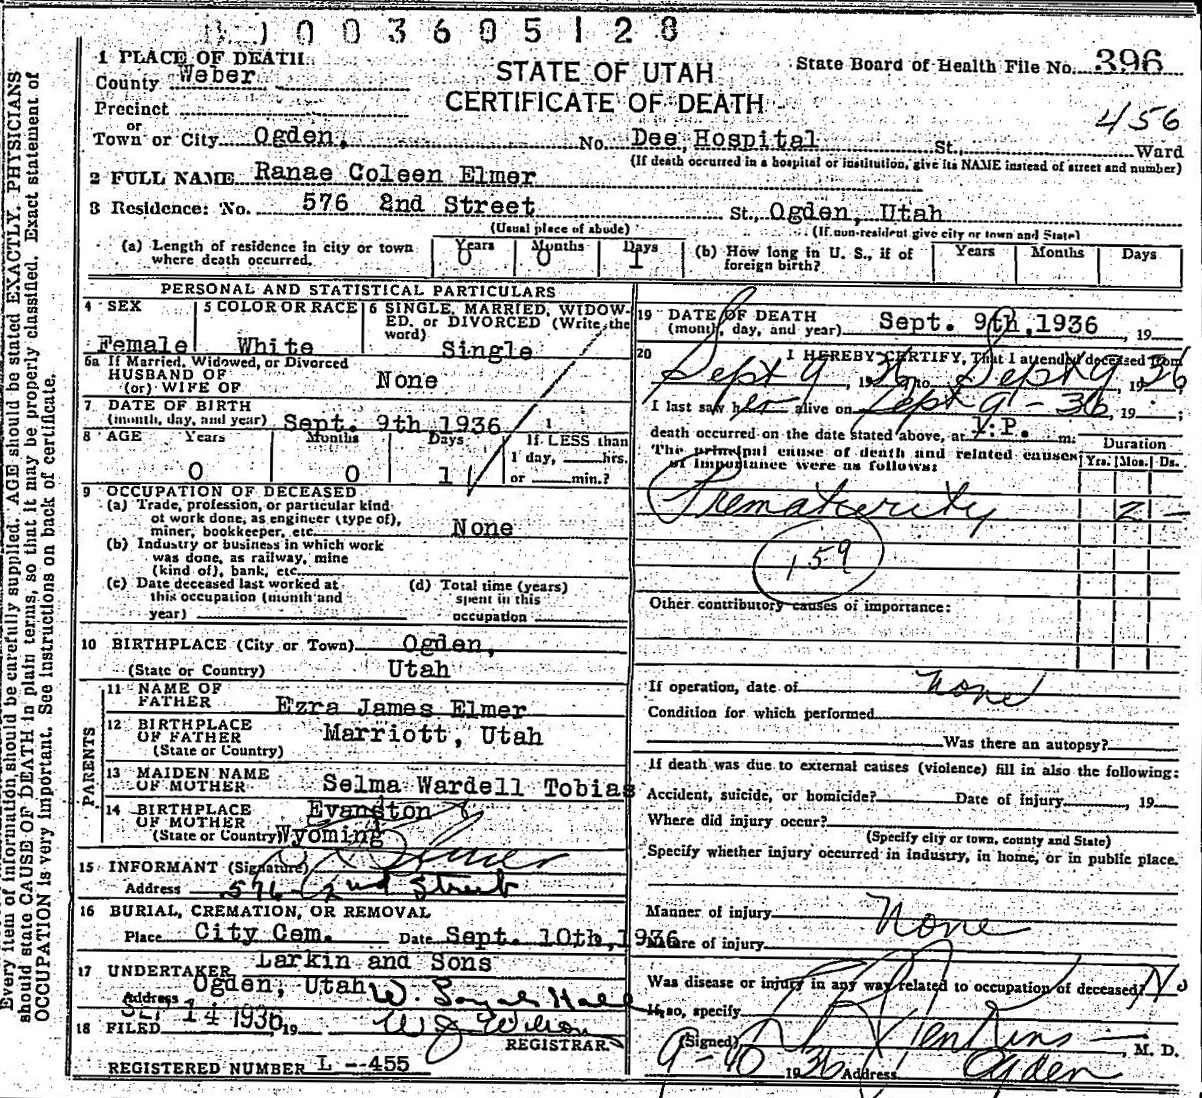 0 0 3 6 0 5 1 2 8
1 PLACE OF DEATH
County Weber
STATE OF UTAH
CERTIFICATE OF DEATH
State Board of Health File No. 396
456
Precinct
or
Town or City Ogden, No. Dee Hospital St., Ward
(If death occurred in a hospital or institution, give its NAME instead of street and number)
2 FULL NAME Ranae Coleen Elmer
3 Residence: No. 576 2nd Street St., Ogden, Utah
(Usual place of abode) (If non-resident give city or town and State)
(a) Length of residence in city or town where death occurred. Years 0 Months 0 Days 1
(b) How long in U. S., if of foreign birth? Years Months Days
PERSONAL AND STATISTICAL PARTICULARS
4 SEX
Female
5 COLOR OR RACE
White
6 SINGLE, MARRIED, WIDOW-
ED, or DIVORCED (Write the
word)
Single
6a If Married, Widowed, or Divorced
HUSBAND OF
(or) WIFE OF None
7 DATE OF BIRTH
(month, day, and year) Sept. 9th 1936
8 AGE Years Months Days If LESS than
0 0 1 1 day, hrs.
or min.?
9 OCCUPATION OF DECEASED
(a) Trade, profession, or particular kind
of work done, as engineer (type of),
miner, bookkeeper, etc. None
(b) Industry or business in which work
was done, as railway, mine
(kind of), bank, etc.
(c) Date deceased last worked at
this occupation (month and
year)
(d) Total time (years)
spent in this
occupation
10 BIRTHPLACE (City or Town) Ogden,
(State or Country) Utah
PARENTS
11 NAME OF
FATHER Ezra James Elmer
12 BIRTHPLACE
OF FATHER Marriott, Utah
(State or Country)
13 MAIDEN NAME
OF MOTHER Selma Wardell Tobias
14 BIRTHPLACE Evanston
OF MOTHER
(State or Country) Wyoming
15 INFORMANT (Signature) Elmer
Address 576 2nd Street
16 BURIAL, CREMATION, OR REMOVAL
Place City Cem. Date Sept. 10th, 1936
17 UNDERTAKER Larkin and Sons
Address Ogden, Utah
SEP 14 1936
18 FILED 19
W J Wilson
REGISTRAR.
REGISTERED NUMBER L --455
19 DATE OF DEATH
(month, day, and year) Sept. 9th, 1936, 19
20 I HEREBY CERTIFY, That I attended deceased from
Sept 9, 1936 to Sept 9, 1936
I last saw her alive on Sept 9 - 36, 19 ;
death occurred on the date stated above, at 1:P. m.
The principal cause of death and related causes
of importance were as follows:
Duration
Yrs. Mos. Ds.
Prematurity 2 –
159
Other contributory causes of importance:
If operation, date of none
Condition for which performed
Was there an autopsy?
If death was due to external causes (violence) fill in also the following:
Accident, suicide, or homicide? Date of injury , 19
Where did injury occur?
(Specify city or town, county and State)
Specify whether injury occurred in industry, in home, or in public place.
Manner of injury None
Nature of injury
Was disease or injury in any way related to occupation of deceased? No
If so, specify
(Signed) Jenkins , M. D.
9-10 1936 Address Ogden
Every item of information should be carefully supplied. AGE should be stated EXACTLY. PHYSICIANS
should state CAUSE OF DEATH in plain terms, so that it may be properly classified. Exact statement of
OCCUPATION is very important. See instructions on back of certificate.